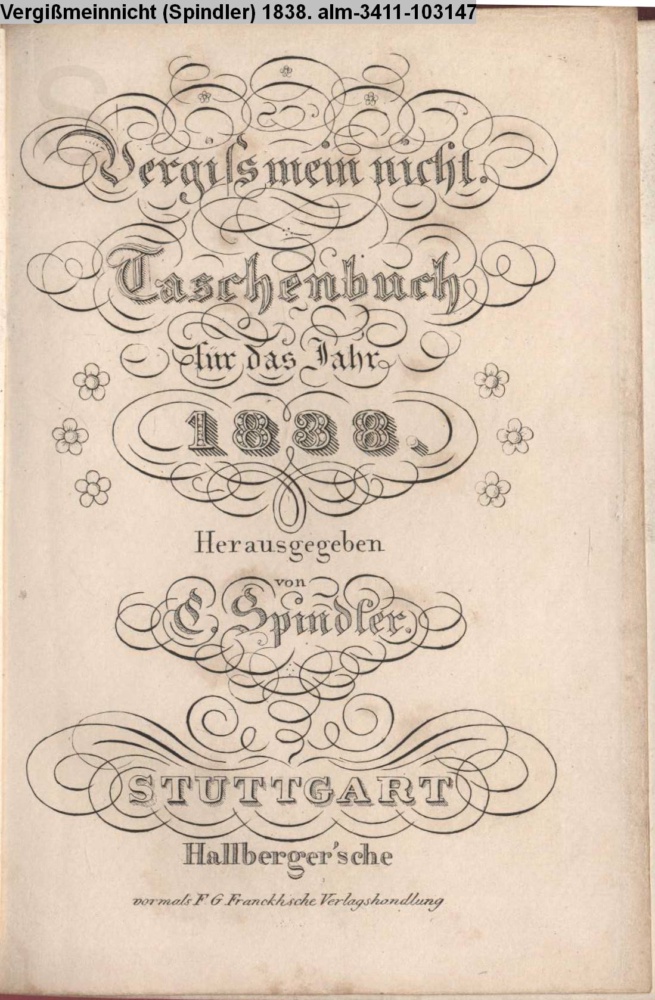 Vergißmeinnicht (Spindler) 1838. alm-3411-103147
Vergiſsmein nicht.
Taschenbuch
für das Jahr
1838.
Herausgegeben
von
C. Spindler.
STUTTGART
Hallberger'sche
vormals F G Franckh'sche Verlagshandlung